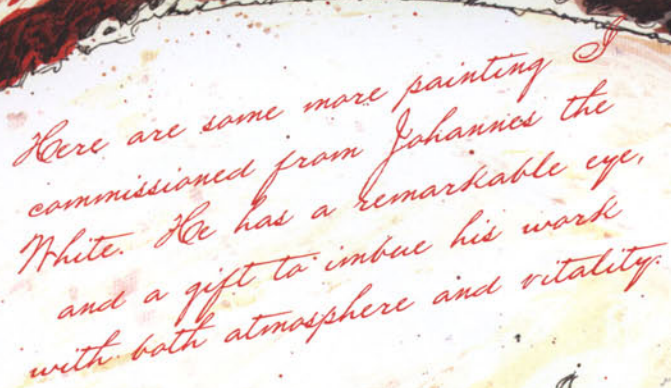 Here are some more painting I
commissioned from Johannes the
White. He has a remarkable eye,
and a gift to imbue his work
with both atmosphere and vitality.